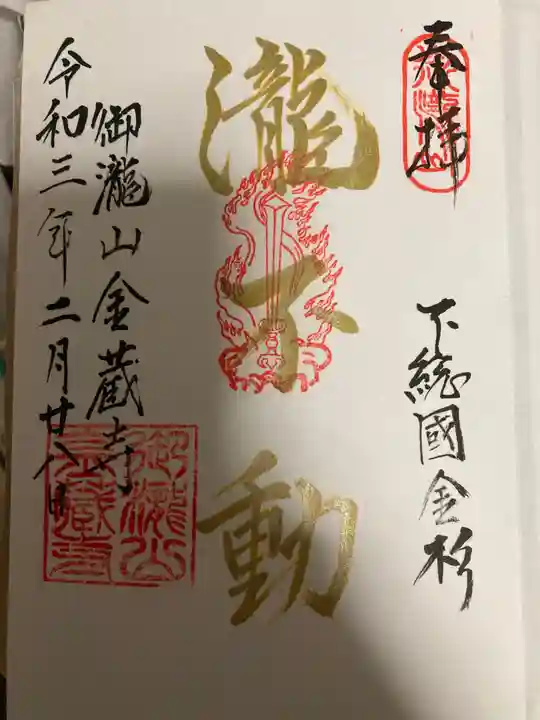 奉拝
下総國金杉
瀧不動
御瀧山金蔵寺
令和三年二月廿八日
御瀧山
金蔵寺